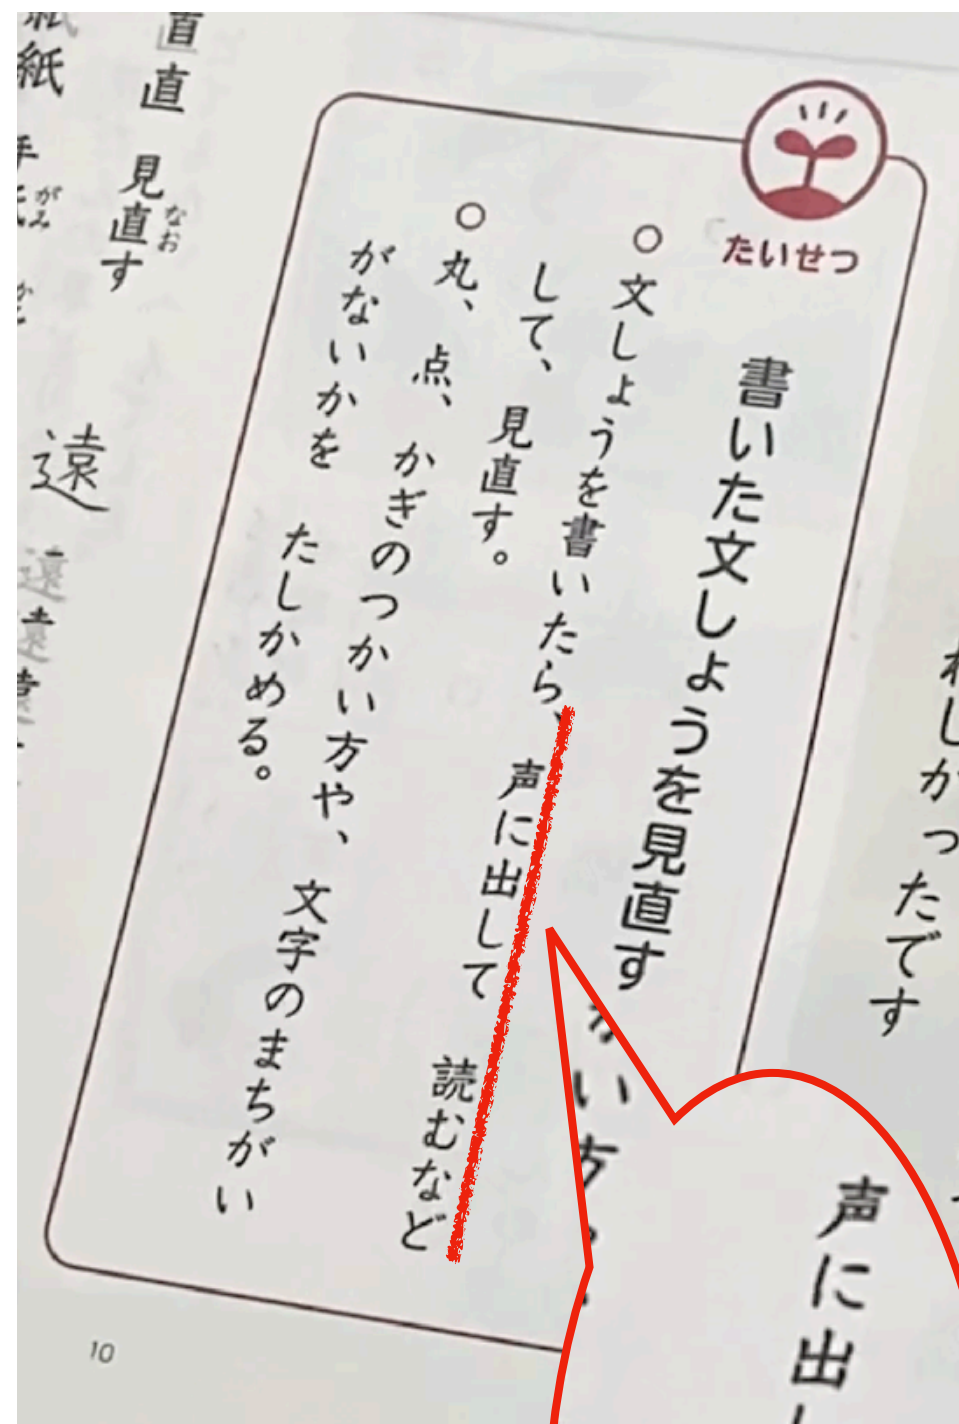 れしかったです
たいせつ
書いた文しょうを見直す
○文しょうを書いたら、声に出して 読むなど
して、見直す。
○丸、点、かぎのつかい方や、文字のまちがい
がないかを たしかめる。
直 見直す
なお
紙
がみ
遠
遠
声に出し
い方
10